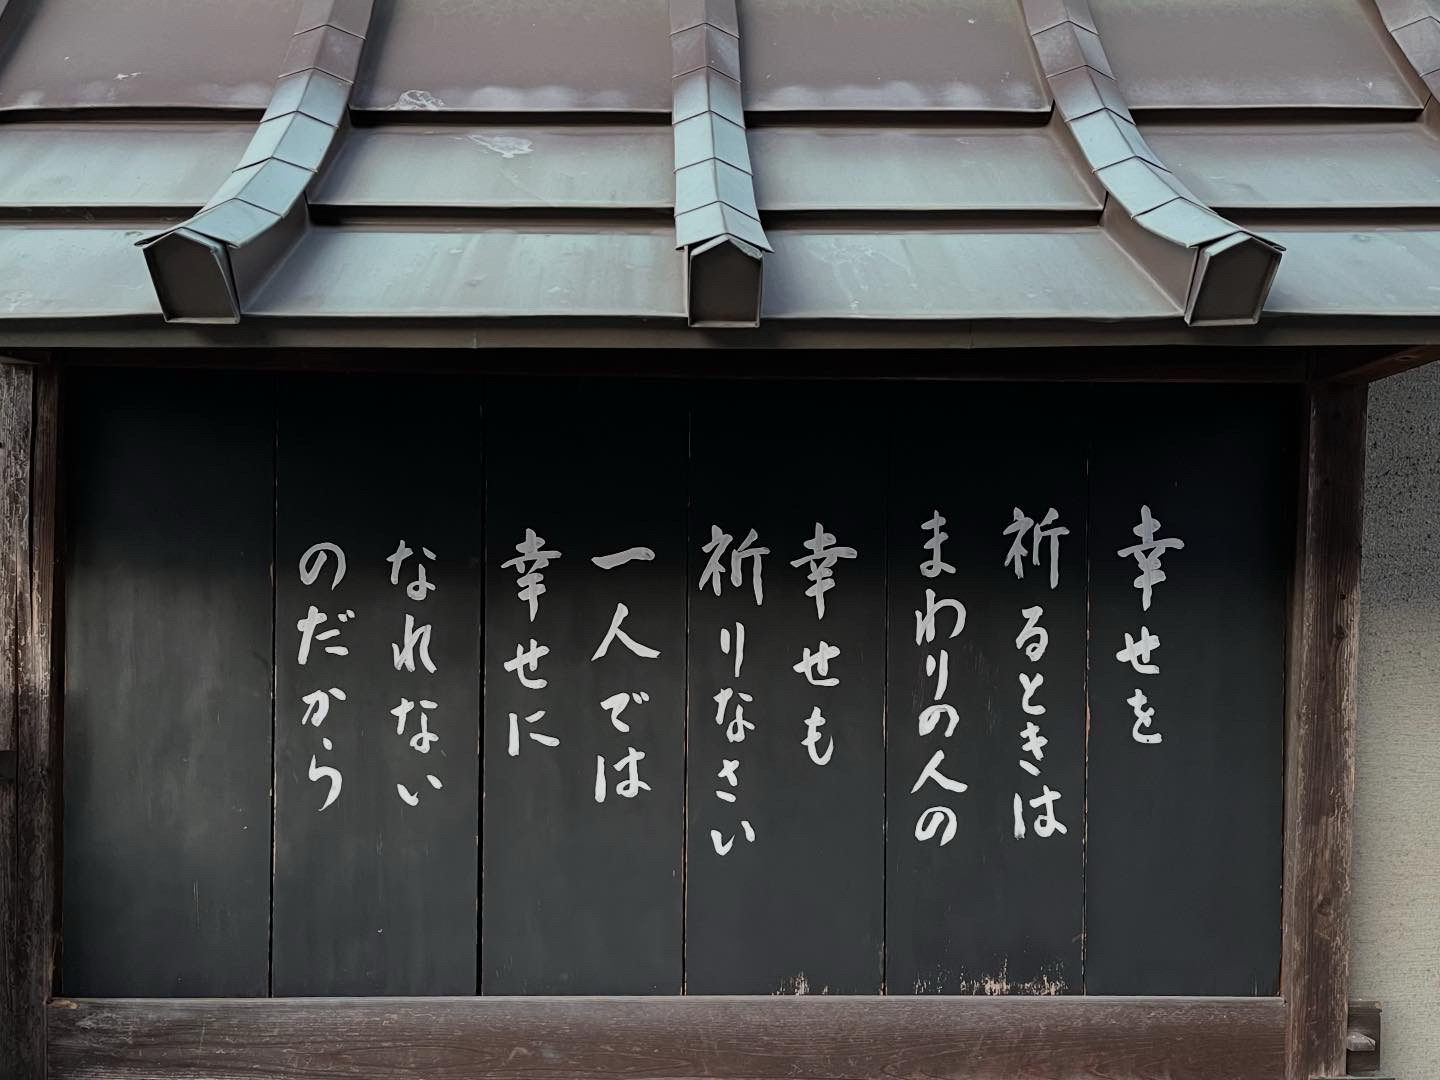 幸せを
祈るときは
まわりの人の
幸せも
祈りなさい
一人では
幸せに
なれない
のだから